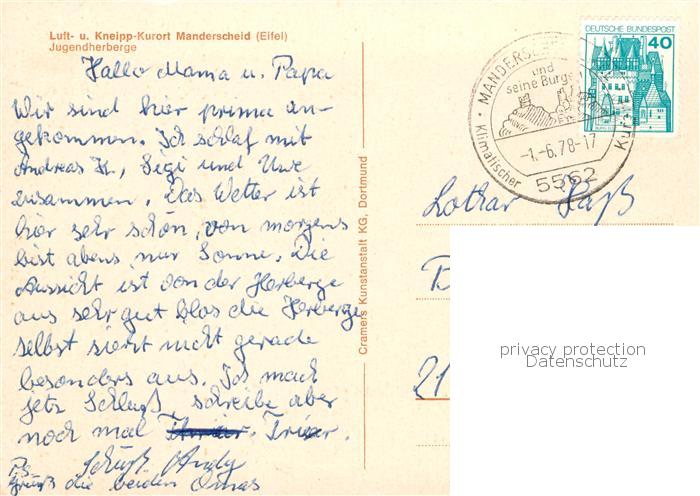 Luft- u. Kneipp-Kurort Manderscheid (Eifel)
Jugendherberge
Hallo Mama u. Papa
Wir sind hier prima an-
gekommen. Ich schlaf mit
Andreas H., Sigi und Uwe
zusammen. Das Wetter ist
hier sehr schön, von morgens
bist abens nur Sonne. Die
Aussicht ist von der Herberge
aus sehr gut blos die Herberge
selbst sieht nicht gerade
besonders aus. Ich mach
jetz Schluß, schreibe aber
noch mal Trier.
Schuß Andy
Ps.
Grüß die beiden Omas
Cramers Kunstanstalt KG, Dortmund
MANDERSCHEID
und
seine Burgen
-1.-6.78-17
Klimatischer Kur
5562
DEUTSCHE BUNDESPOST
40
Lothar
21
privacy protection
Datenschutz